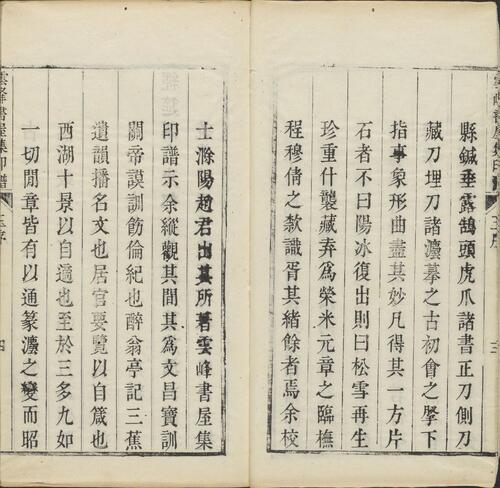 縣鍼垂露鵠頭虎爪諸書正刀側刀
藏刀埋刀諸灋摹之古初會之腕下
指事象形曲盡其妙凡得其一方片
石者不曰陽冰復出則曰松雪再生
珍重什襲藏弆爲榮米元章之臨橅
程穆倩之欵識胥其緒餘者焉余校
士滁陽趙君出其所著雲峰書屋集
印譜示余縱觀其間其爲文昌寶訓
關帝謨訓飭倫紀也醉翁亭記三蕉
遺韻播名文也居官要覽以自箴也
西湖十景以自適也至於三多九如
一切閒章皆有以通篆灋之變而昭
雲峰書屋集印譜
王序
四